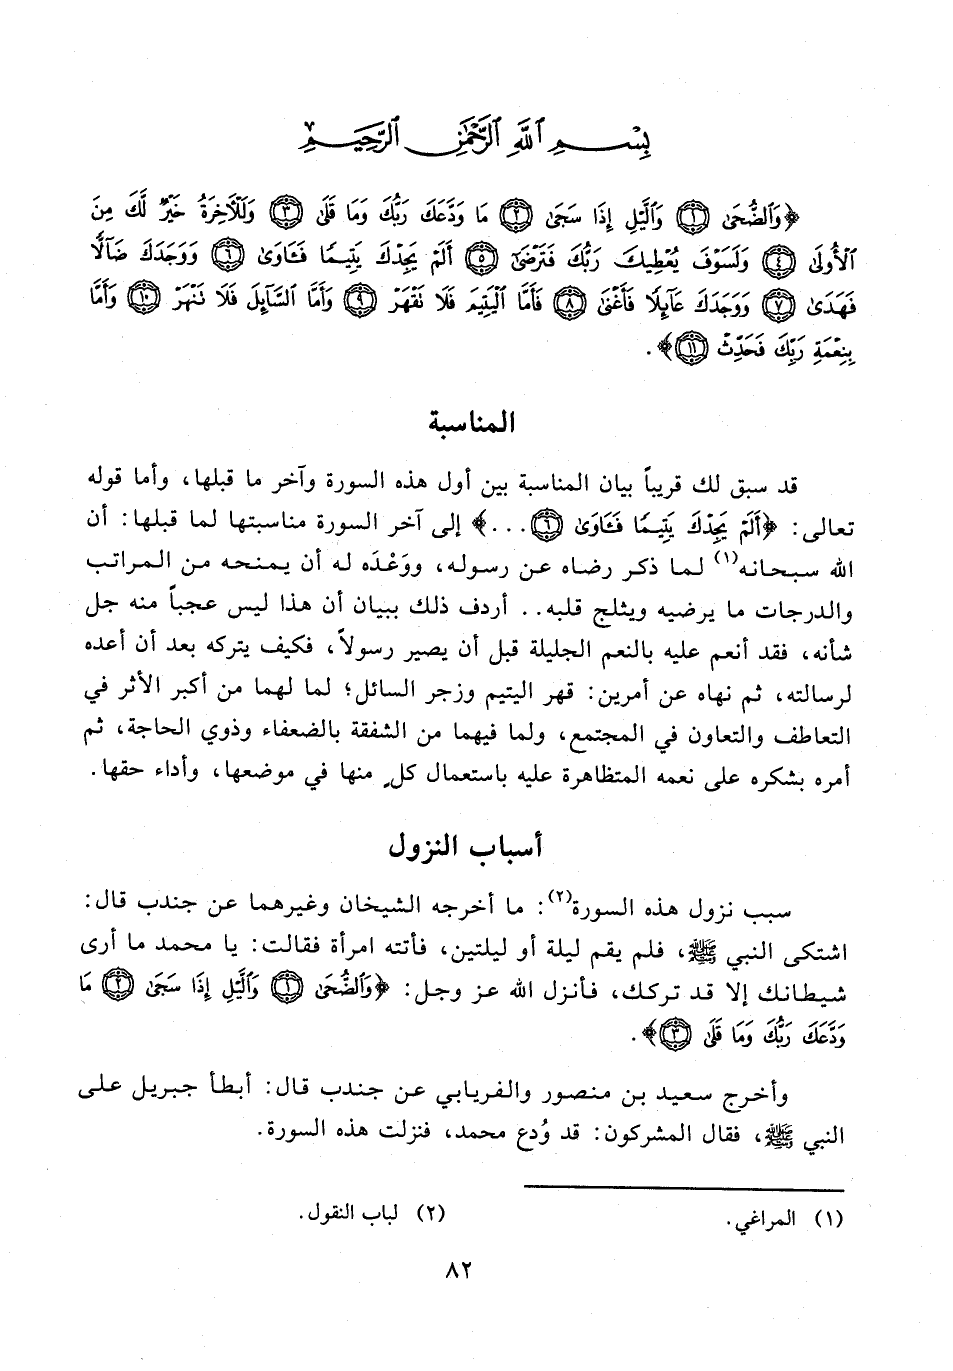 بِسْمِ ٱللَّهِ ٱلرَّحْمَٰنِ ٱلرَّحِيمِ
﴿وَٱلضُّحَىٰ ١ وَٱلَّيْلِ إِذَا سَجَىٰ ٢ مَا وَدَّعَكَ رَبُّكَ وَمَا قَلَىٰ ٣ وَلَلْـَٔاخِرَةُ خَيْرٌ لَّكَ مِنَ
ٱلْأُولَىٰ ٤ وَلَسَوْفَ يُعْطِيكَ رَبُّكَ فَتَرْضَىٰٓ ٥ أَلَمْ يَجِدْكَ يَتِيمًا فَـَٔاوَىٰ ٦ وَوَجَدَكَ ضَآلًّا
فَهَدَىٰ ٧ وَوَجَدَكَ عَآئِلًا فَأَغْنَىٰ ٨ فَأَمَّا ٱلْيَتِيمَ فَلَا تَقْهَرْ ٩ وَأَمَّا ٱلسَّآئِلَ فَلَا تَنْهَرْ ١٠ وَأَمَّا
بِنِعْمَةِ رَبِّكَ فَحَدِّثْ ١١﴾.
المناسبة
قد سبق لك قريباً بيان المناسبة بين أول هذه السورة وآخر ما قبلها، وأما قوله
تعالى: ﴿أَلَمْ يَجِدْكَ يَتِيمًا فَـَٔاوَىٰ ٦...﴾ إلى آخر السورة مناسبتها لما قبلها: أن
الله سبحانه(١) لما ذكر رضاه عن رسوله، ووَعْدَه له أن يمنحه من المراتب
والدرجات ما يرضيه ويثلج قلبه.. أردف ذلك ببيان أن هذا ليس عجباً منه جل
شأنه، فقد أنعم عليه بالنعم الجليلة قبل أن يصير رسولاً، فكيف يتركه بعد أن أعده
لرسالته، ثم نهاه عن أمرين: قهر اليتيم وزجر السائل؛ لما لهما من أكبر الأثر في
التعاطف والتعاون في المجتمع، ولما فيهما من الشفقة بالضعفاء وذوي الحاجة، ثم
أمره بشكره على نعمه المتظاهرة عليه باستعمال كلٍ منها في موضعها، وأداء حقها.
أسباب النزول
سبب نزول هذه السورة(٢): ما أخرجه الشيخان وغيرهما عن جندب قال:
اشتكى النبي ﷺ، فلم يقم ليلة أو ليلتين، فأتته امرأة فقالت: يا محمد ما أرى
شيطانك إلا قد تركك، فأنزل الله عز وجل: ﴿وَٱلضُّحَىٰ ١ وَٱلَّيْلِ إِذَا سَجَىٰ ٢ مَا
وَدَّعَكَ رَبُّكَ وَمَا قَلَىٰ ٣﴾.
وأخرج سعيد بن منصور والفريابي عن جندب قال: أبطأ جبريل على
النبي ﷺ، فقال المشركون: قد وُدع محمد، فنزلت هذه السورة.
(١) المراغي. (٢) لباب النقول.
٨٢